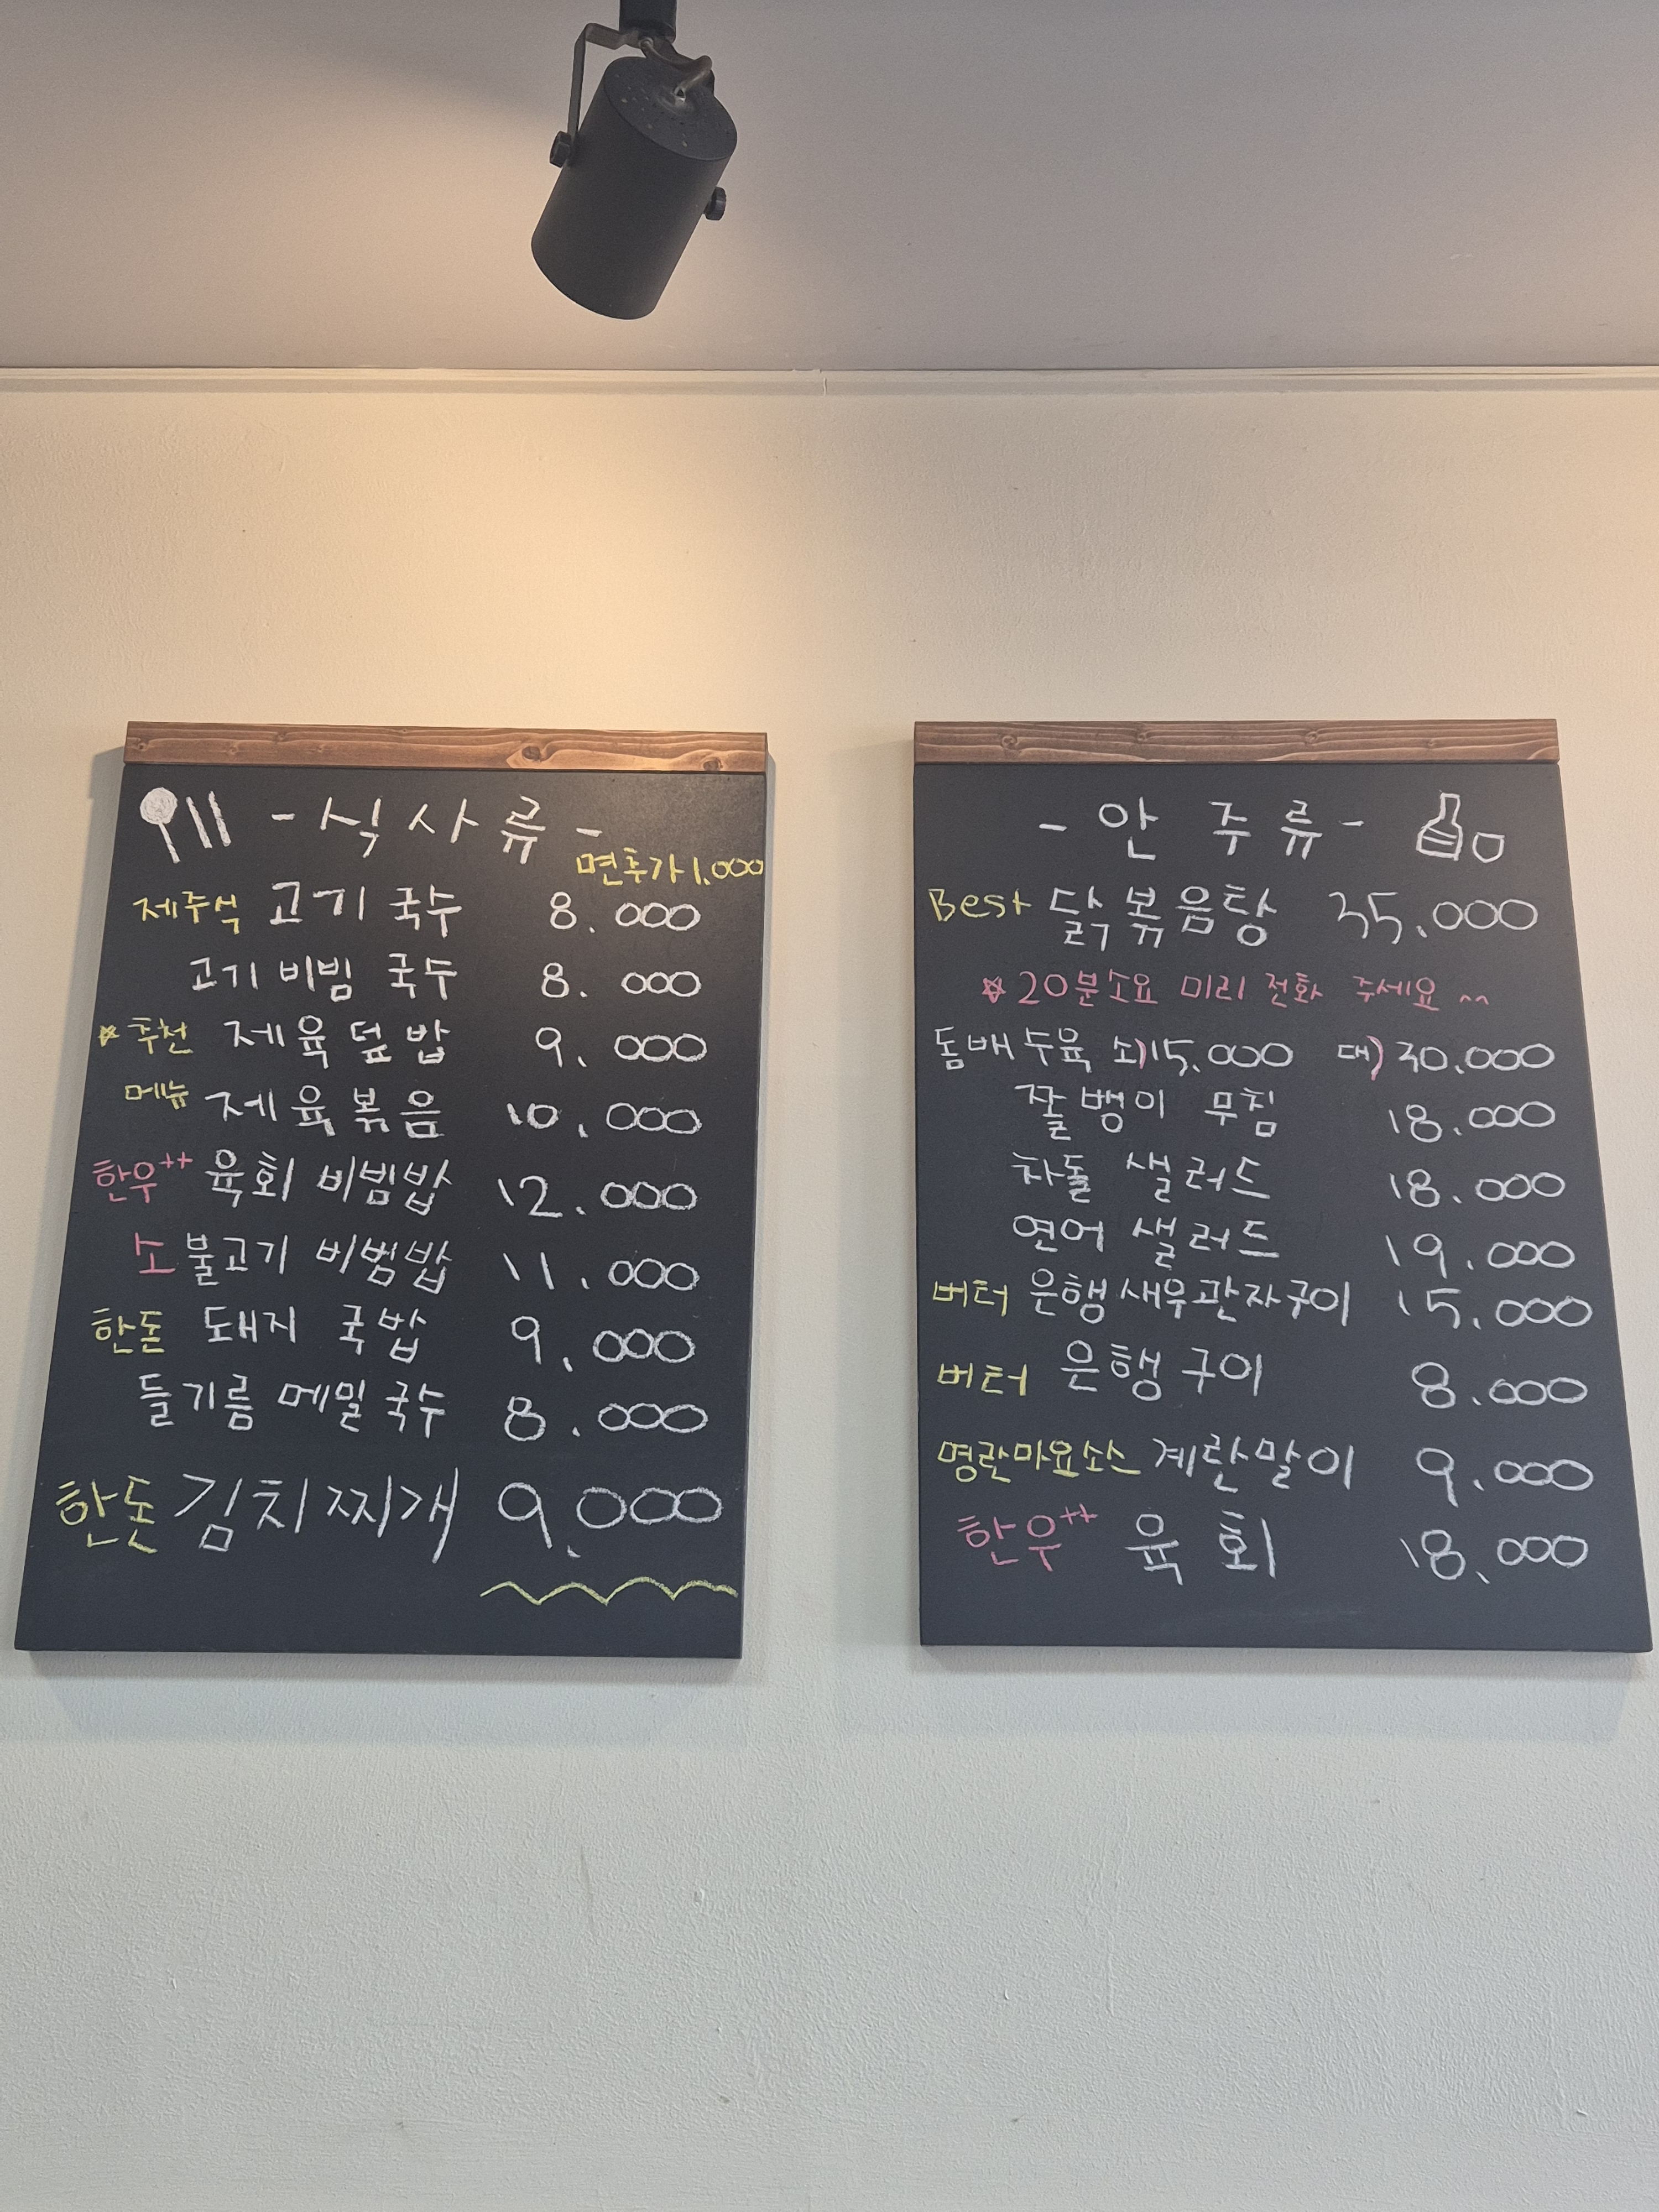 - 식사류 -
면추가 1.000
제주식 고기 국수 8.000
고기 비빔 국수 8.000
추천 제육덮밥 9.000
메뉴 제육볶음 10.000
한우++ 육회 비빔밥 12.000
소 불고기 비빔밥 11.000
한돈 돼지 국밥 9.000
들기름 메밀국수 8.000
한돈 김치찌개 9.000
- 안주류 -
Best 닭볶음탕 35.000
20분소요 미리 전화 주세요 ^^
돔베수육 소)15.000 대)30.000
쫄뱅이 무침 18.000
차돌 샐러드 18.000
연어 샐러드 19.000
버터 은행새우관자구이 15.000
버터 은행구이 8.000
명란마요소스 계란말이 9.000
한우++ 육회 18.000